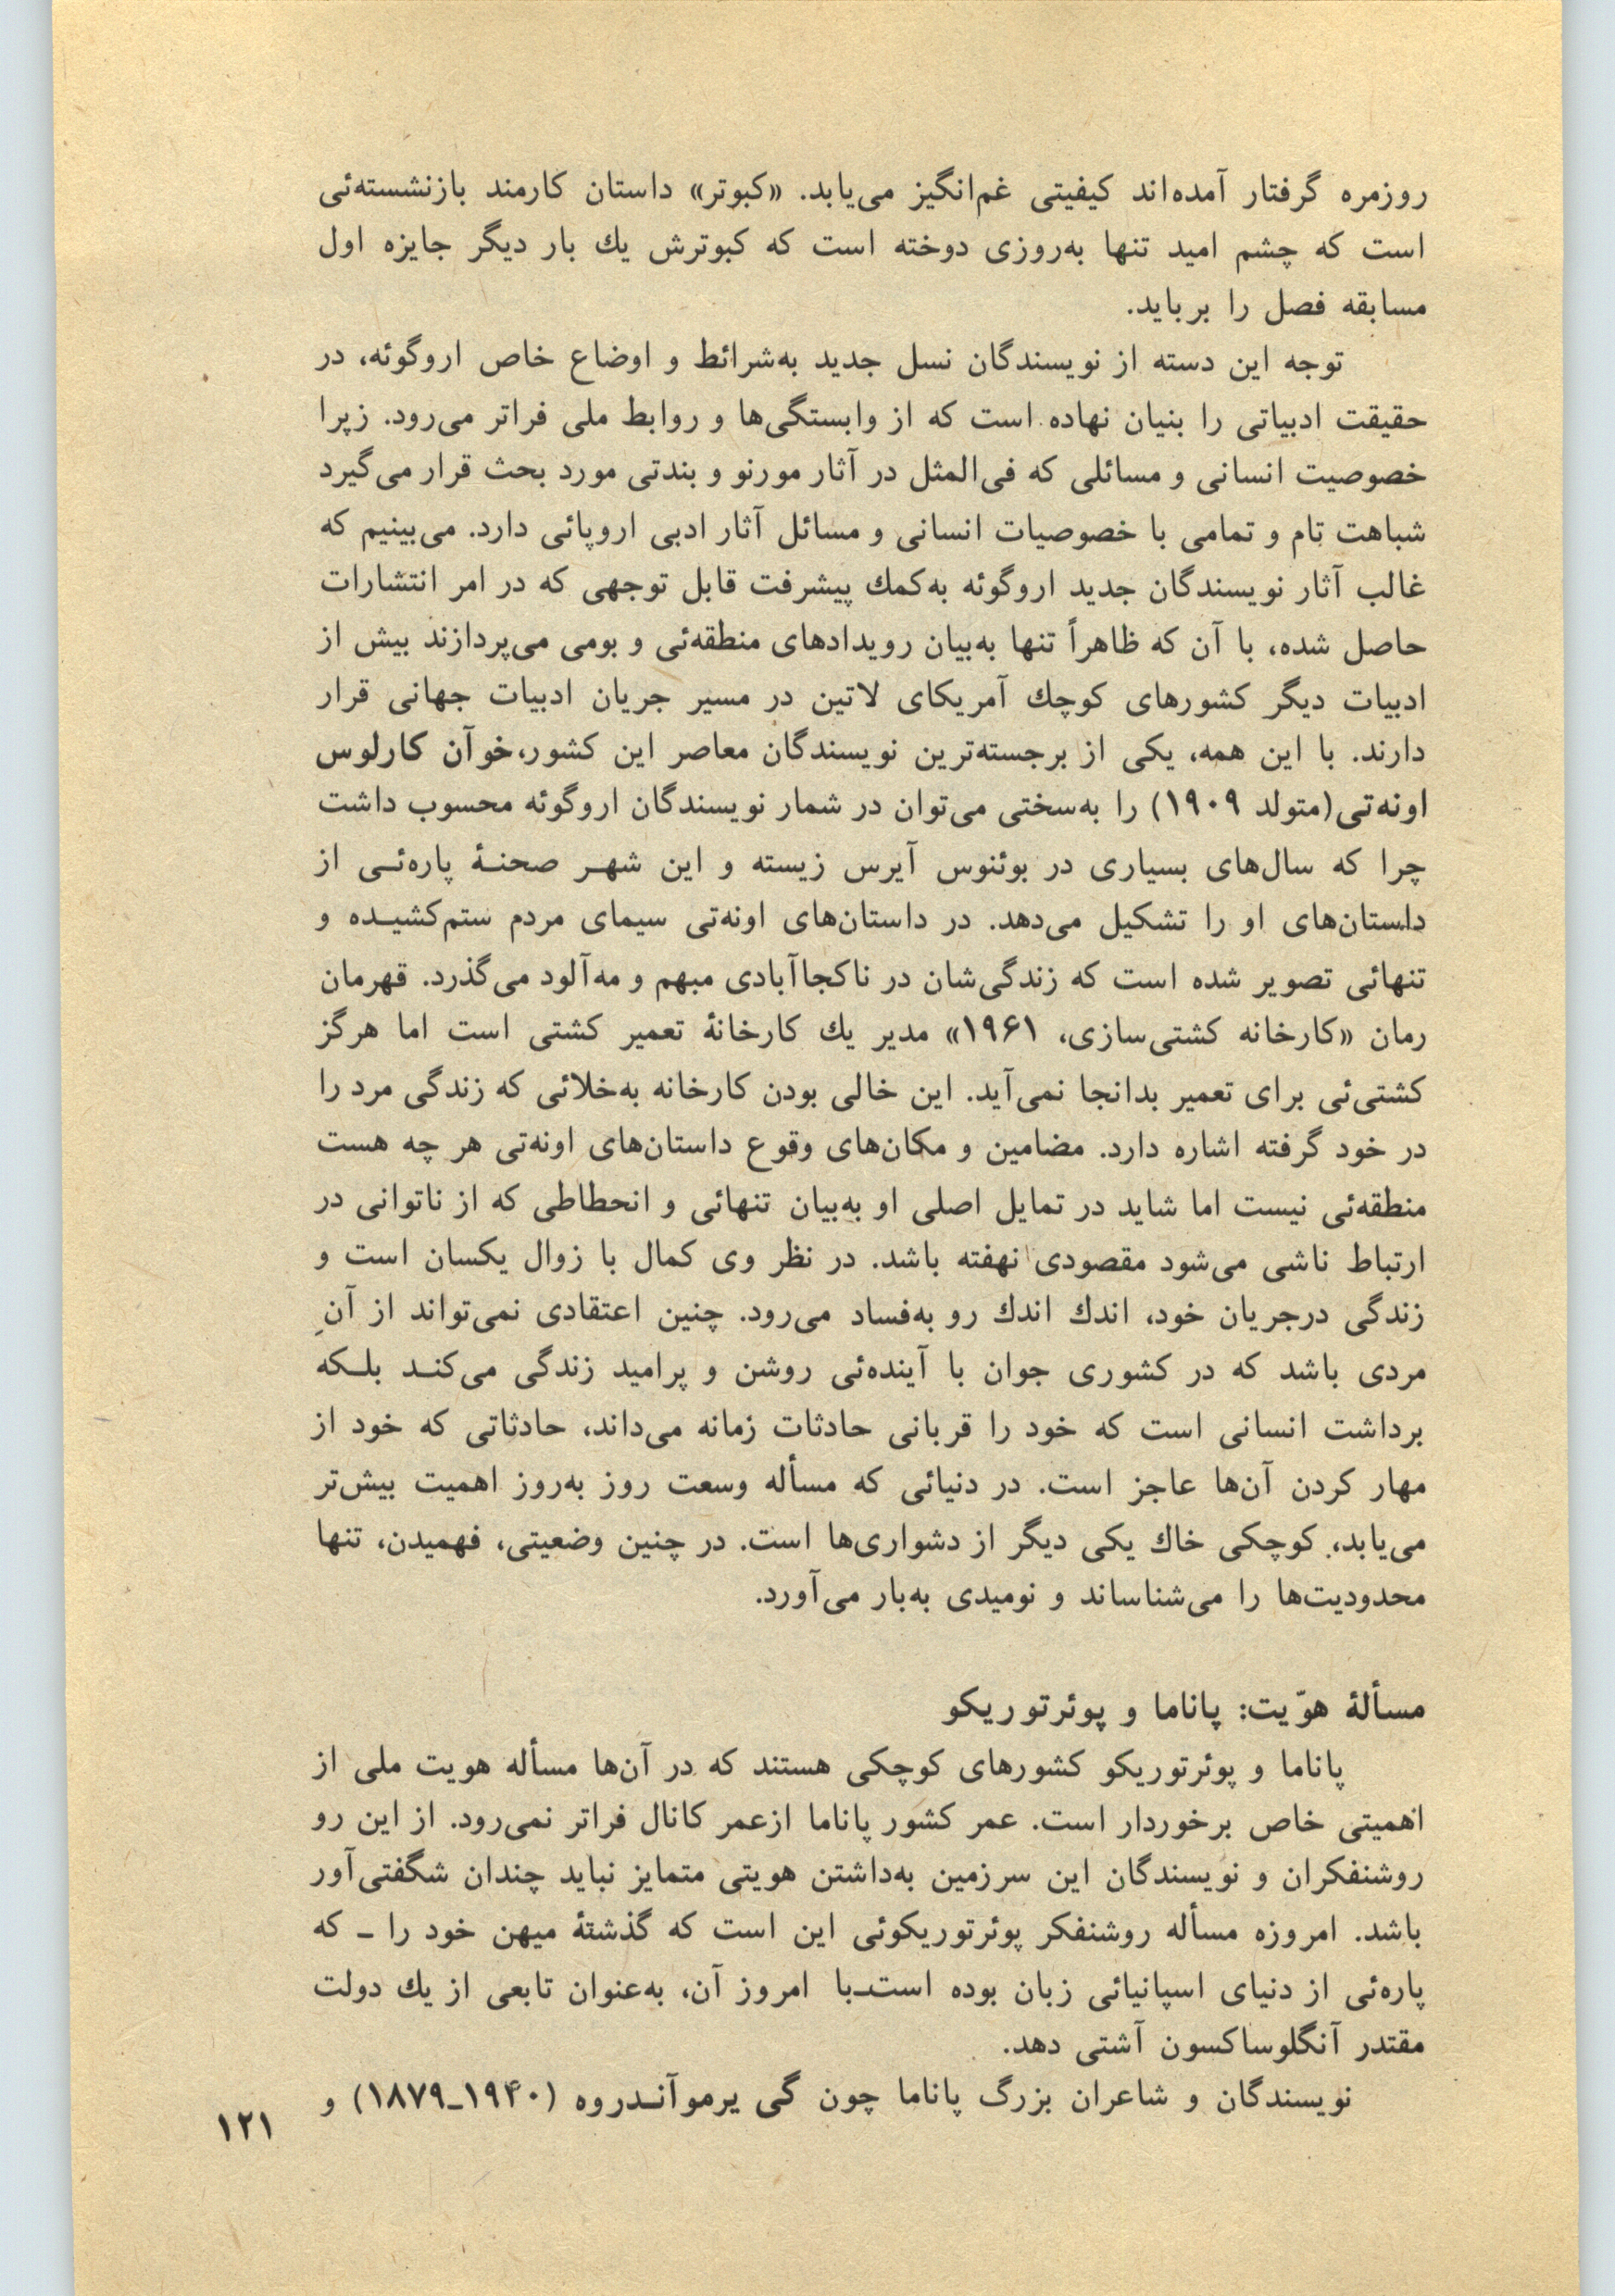 روزمره گرفتار آمده‌اند کیفیتی غم‌انگیز می‌یابد. «کبوتر» داستان کارمند بازنشسته‌ئی
است که چشم امید تنها به‌روزی دوخته است که کبوترش یك بار دیگر جایزه اول
مسابقه فصل را برباید.
توجه این دسته از نویسندگان نسل جدید به‌شرائط و اوضاع خاص اروگوئه، در
حقیقت ادبیاتی را بنیان نهاده است که از وابستگی‌ها و روابط ملی فراتر می‌رود. زیرا
خصوصیت انسانی و مسائلی که فی‌المثل در آثار مورنو و بندتی مورد بحث قرار می‌گیرد
شباهت تام و تمامی با خصوصیات انسانی و مسائل آثار ادبی اروپائی دارد. می‌بینیم که
غالب آثار نویسندگان جدید اروگوئه به‌کمك پیشرفت قابل توجهی که در امر انتشارات
حاصل شده، با آن که ظاهراً تنها به‌بیان رویدادهای منطقه‌ئی و بومی می‌پردازند بیش از
ادبیات دیگر کشورهای کوچك آمریکای لاتین در مسیر جریان ادبیات جهانی قرار
دارند. با این همه، یکی از برجسته‌ترین نویسندگان معاصر این کشور، خوآن کارلوس
اونه‌تی (متولد ۱۹۰۹) را به‌سختی می‌توان در شمار نویسندگان اروگوئه محسوب داشت
چرا که سال‌های بسیاری در بوئنوس آیرس زیسته و این شهـر صحنـۀ پاره‌ئـی از
داستان‌های او را تشکیل می‌دهد. در داستان‌های اونه‌تی سیمای مردم ستم‌کشیـده و
تنهائی تصویر شده است که زندگی‌شان در ناکجاآبادی مبهم و مه‌آلود می‌گذرد. قهرمان
رمان «کارخانه کشتی‌سازی، ۱۹۶۱» مدیر یك کارخانۀ تعمیر کشتی است اما هرگز
کشتی‌ئی برای تعمیر بدانجا نمی‌آید. این خالی بودن کارخانه به‌خلائی که زندگی مرد را
در خود گرفته اشاره دارد. مضامین و مکان‌های وقوع داستان‌های اونه‌تی هر چه هست
منطقه‌ئی نیست اما شاید در تمایل اصلی او به‌بیان تنهائی و انحطاطی که از ناتوانی در
ارتباط ناشی می‌شود مقصودی نهفته باشد. در نظر وی کمال با زوال یکسان است و
زندگی درجریان خود، اندك اندك رو به‌فساد می‌رود. چنین اعتقادی نمی‌تواند از آنِ
مردی باشد که در کشوری جوان با آینده‌ئی روشن و پرامید زندگی می‌کنـد بلـکه
برداشت انسانی است که خود را قربانی حادثات زمانه می‌داند، حادثاتی که خود از
مهار کردن آن‌ها عاجز است. در دنیائی که مسأله وسعت روز به‌روز اهمیت بیش‌تر
می‌یابد، کوچکی خاك یکی دیگر از دشواری‌ها است. در چنین وضعیتی، فهمیدن، تنها
محدودیت‌ها را می‌شناساند و نومیدی به‌بار می‌آورد.
مسألۀ هوّیت: پاناما و پوئرتوریکو
پاناما و پوئرتوریکو کشورهای کوچکی هستند که در آن‌ها مسأله هویت ملی از
اهمیتی خاص برخوردار است. عمر کشور پاناما ازعمر کانال فراتر نمی‌رود. از این رو
روشنفکران و نویسندگان این سرزمین به‌داشتن هویتی متمایز نباید چندان شگفتی‌آور
باشد. امروزه مسأله روشنفکر پوئرتوریکوئی این است که گذشتۀ میهن خود را ـ که
پاره‌ئی از دنیای اسپانیائی زبان بوده است‌ـ‌با امروز آن، به‌عنوان تابعی از یك دولت
مقتدر آنگلوساکسون آشتی دهد.
نویسندگان و شاعران بزرگ پاناما چون گی یرموآنـدروه (۱۹۴۰ـ۱۸۷۹) و
۱۲۱